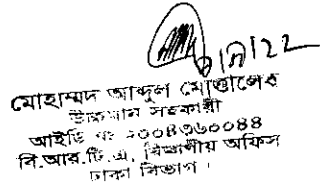 মোহাম্মদ আব্দুল মোত্তালেব
সহকারী
আইডি নং ২০০৪৩৬০০৪৪
বি.আর.টি.এ, বিভাগীয় অফিস
ঢাকা বিভাগ।